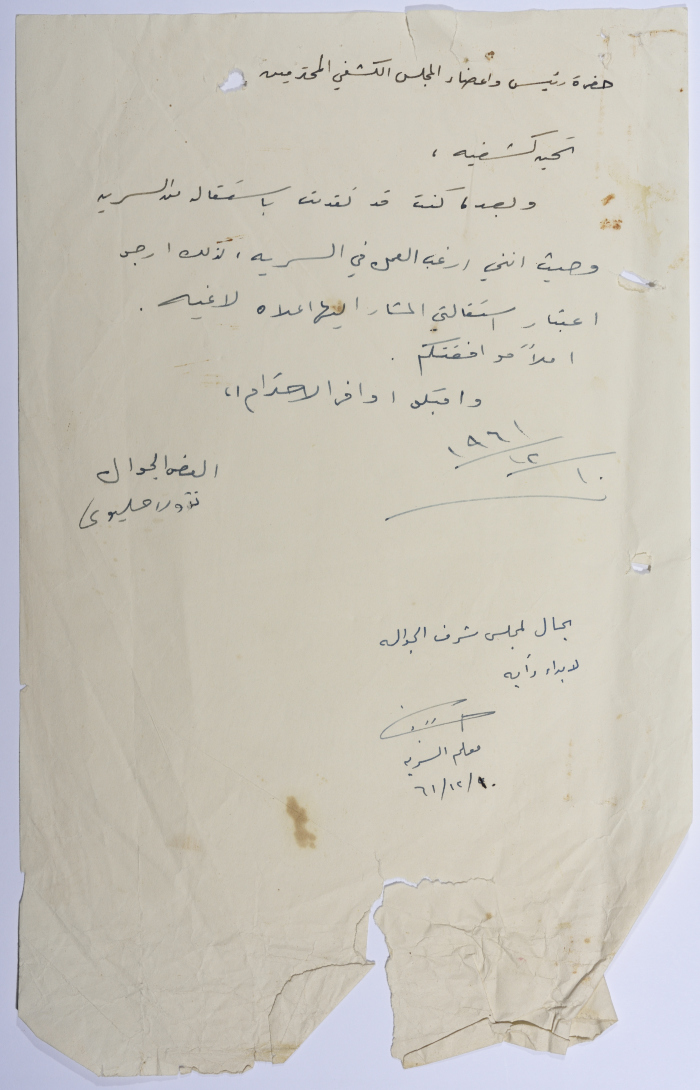 حضرة رئيس واعضاء المجلس الكشفي المحترمين
تحيه كشفيه ،
وبعد كنت قد تقدمت باستقاله من السريه
وحيث انني ارغب العمل في السريه ، لذلك ارجو
اعتبار استقالتي المشار اليها اعلاه لاغيه .
املاً موافقتكم .
واقبلوا وافر الاحترام ،،
١٩٦١/١٢/١٠
العضو الجوال
نقولا
يحال لمجلس شرف الجواله
لابداء رأيه
معلم السريه
٦١/١٢/١٠